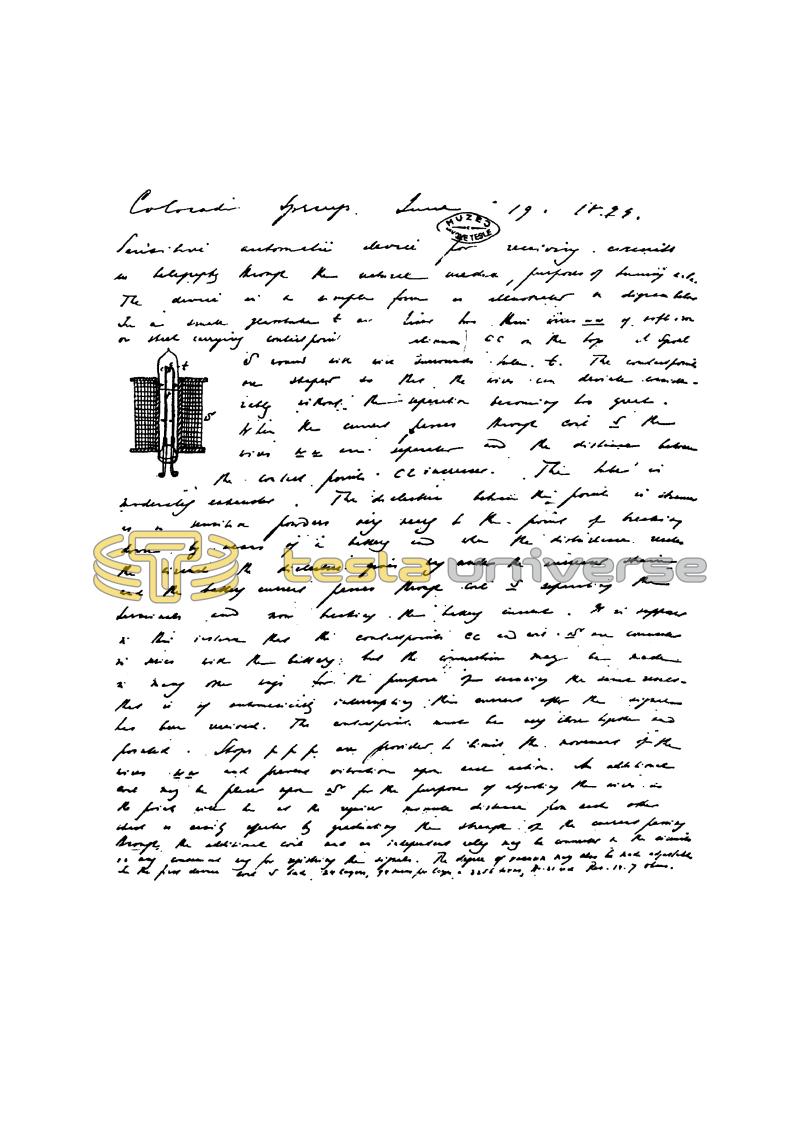 Colorado Springs. June 19. 1899.
MUZEJ
NIKOLE TESLE
Sensitive automatic device for receiving circuits
in telegraphy through the natural media, purposes of tuning etc.
The device in a simple form is illustrated in diagram below
In a small glass tube t are fixed two thin wires w w of soft iron
or steel carrying contact points c c on the top. A spool
S wound with wire surrounds tube t. The contact points
are shaped so that the wires can deviate consider-
ably without the separation becoming too great.
When the current passes through coil S the
wires w w are separated and the distance between
the contact points c c increases. The tube is
moderately exhausted. The dielectric between the points is strained
as in sensitive powders very nearly to the point of breaking
down by means of a battery and when the disturbance reaches
the circuit the dielectric gives way
and the battery current passes through coil S separating the
terminals and now breaking the battery current. It is supposed
in this instance that the contact points cc and coil S are connected
in series with the battery; but the connection may be made
in many other ways for the purpose of securing the same result -
that is of automatically interrupting this current after the signal
has been received. The contact points must be very close together and
polished. Stops p p p are provided to limit the movement of the
wires w w and prevent vibration upon each action. An additional
coil may be placed upon S for the purpose of adjusting the wires so
the points will be at the required minute distance from each other
which is easily effected by graduating the strength of the current passing
through the additional coil and an independent relay may be connected to the circuits
in any convenient way for registering the signals. The degree of vacuum may also be made adjustable
In the first device coil S had
tesla universe